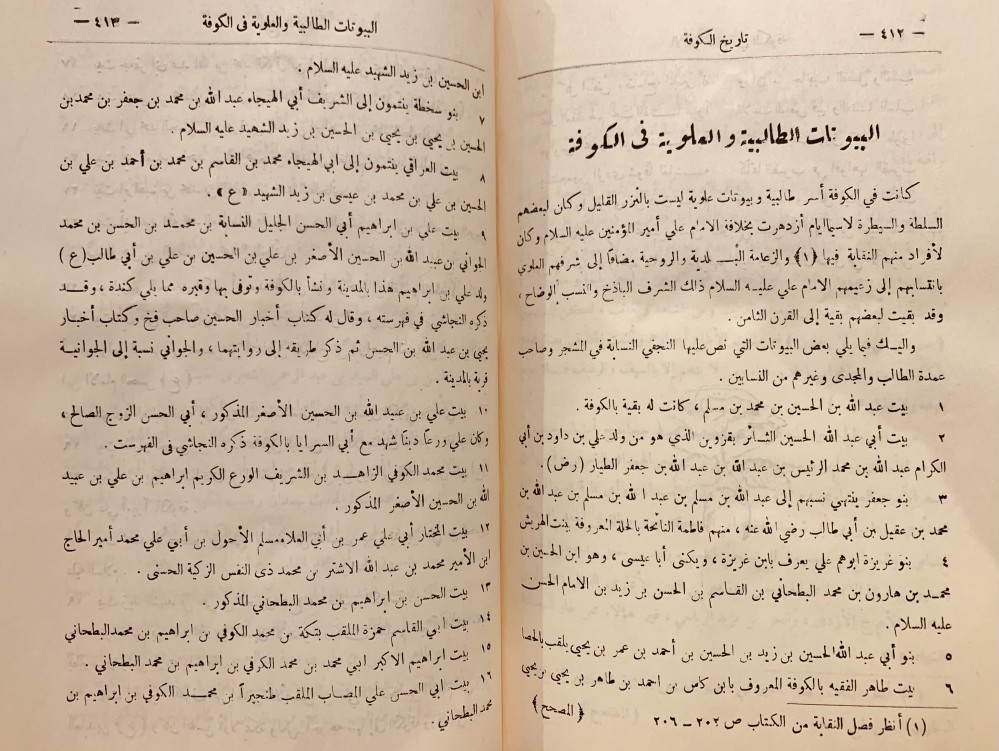 — ٤١٢ —
تاريخ الكوفة
البيوتات الطالبية والعلوية فى الكوفة
كانت في الكوفة أسر طالبية وبيوتات علوية ليست بالنزر القليل وكان لبعضهم
السلطة والسيطرة لاسيما ايام ازدهرت بخلافة الامام علي أمير المؤمنين عليه السلام وكان
لأفراد منهم النقابة فيها (١) والزعامة البـلدية والروحية مضافاً إلى شرفهم العلوي
بانتسابهم إلى زعيمهم الامام علي عليه السلام ذلك الشرف الباذخ والنسب الوضاح ،
وقد بقيت لبعضهم بقية إلى القرن الثامن .
واليك فيما يلي بعض البيوتات التي نص عليها النجفي النسابة في المشجر وصاحب
عمدة الطالب والمجدى وغيرهم من النسابين .
١ بيت عبد الله بن الحسين بن محمد بن مسلم ، كانت له بقية بالكوفة .
٢ بيت أبي عبد الله الحسين الثـائر بقزوين الذي هو من ولد علي بن داود بن أبي
الكرام عبد الله بن محمد الرئيس بن عبد الله بن عبد الله بن جعفر الطيار (رض) .
٣ بنو جعفر ينتهي نسبهم إلى عبد الله بن مسلم بن عبد الله بن مسلم بن عبد الله بن
محمد بن عقيل بن أبي طالب رضي الله عنه ، منهم فاطمة النائحة بالحلة المعروفة ببنت الهريش
٤ بنو غريزة ابوهم علي يعرف بابن غريزة ، ويكنى أبا عيسى ، وهو ابن الحسين بن
محمـد بن هارون بن محمد البطحاني بن القـاسم بن الحسن بن زيد بن الامام الحسن
عليه السلام .
٥ بنو أبي عبد الله الحسين بن زيد بن الحسين بن أحمد بن عمر بن يحيى يلقب بالحصا
٦ بيت طاهر الفقيه بالكوفة المعروف بابن كاس بن احمد بن طاهر بن يحيى بن يحيى
(١) أنظر فصل النقابة من الكتاب ص ٢٠٢ — ٢٠٦ (المصحح)
البيوتات الطالبية والعلوية فى الكوفة
— ٤١٣ —
ابن الحسين بن زيد الشهيد عليه السلام .
٧ بنو سخطة ينتمون إلى الشريف أبي الهيجاء عبد الله بن محمد بن جعفر بن محمد بن
الحسين بن يحيى بن يحيى بن الحسين بن زيد الشهيد عليه السلام .
٨ بيت العراقي ينتمون إلى أبي الهيجاء محمد بن القاسم بن محمد بن أحمد بن علي بن
الحسين بن علي بن محمد بن عيسى بن زيد الشهيد «ع» .
٩ بيت علي بن ابراهيم أبي الحسن الجليل النسابة بن محمـد بن الحسن بن محمد
الجواني بن عبيد الله بن الحسين الأصغر بن علي بن الحسين بن علي بن أبي طالب (ع)
ولد علي بن ابراهيم هذا بالمدينة ونشأ بالكوفة وتوفى بها وقبره مما يلي كندة ، وقـد
ذكره النجاشي في فهرسته ، وقال له كتاب أخبار الحسين صاحب فخ وكتاب أخبار
يحيى بن عبد الله بن الحسن ثم ذكر طريقه إلى روايتهما ، والجواني نسبة إلى الجوانية
قرية بالمدينة .
١٠ بيت علي بن عبيد الله بن الحسين الأصغر المذكور ، أبي الحسن الزوج الصالح ،
وكان علي ورعاً ديناً شهد مع أبي السرايا بالكوفة ذكره النجاشي في الفهرست .
١١ بيت محمد الكوفي الزاهـد بن الشريف الورع الكريم ابراهيم بن علي بن عبيد
الله بن الحسين الأصغر المذكور .
١٢ بيت المختار أبي علي عمر بن أبي العلاء مسلم الأحول بن أبي علي محمد أمير الحاج
ابن الأمير محمد بن عبد الله الاشتر بن محمد ذى النفس الزكية الحسنى .
١٣ بيت الحسن بن ابراهيم بن محمد البطحاني المذكور .
١٤ بيت ابي القاسم حمزة الملقب بتكة بن محمد الكوفي بن ابراهيم بن محمد البطحاني
١٥ بيت ابراهيم الاكبر ابي محمد بن محمد الكوفي بن ابراهيم بن محمد البطحاني .
١٦ بيت ابي الحسن علي المصاب الملقب طنجيراً بن محمـد الكوفي بن ابراهيم بن
محمد البطحاني .